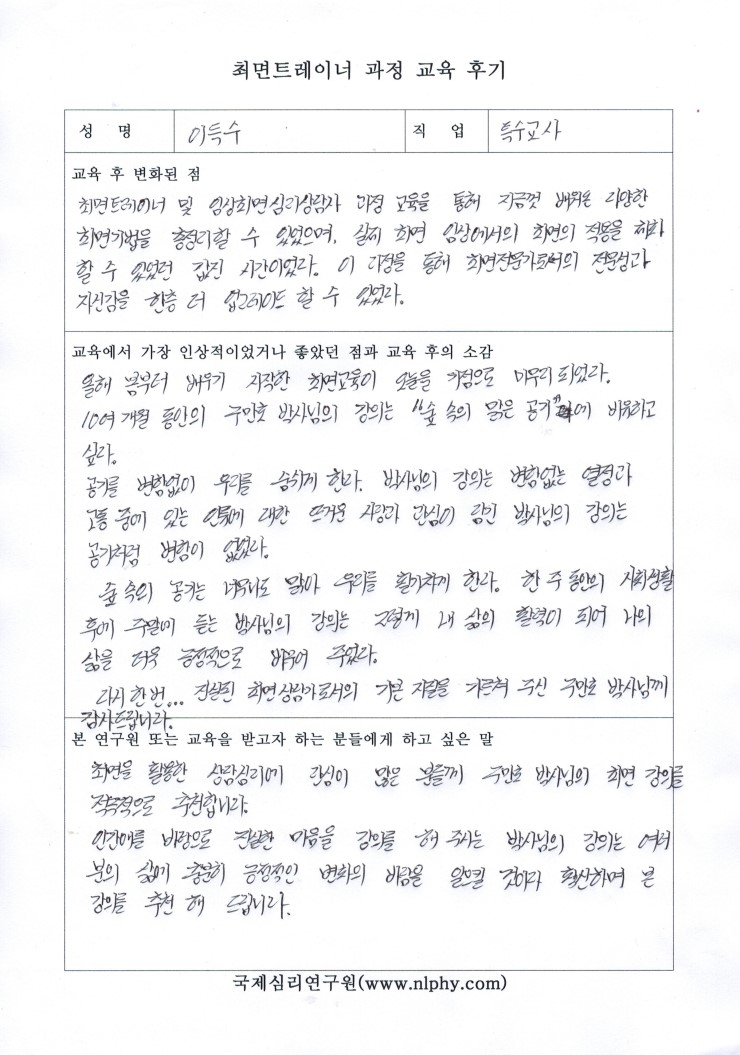 최면트레이너 과정 교육 후기
성 명 이득수 직 업 특수교사
교육 후 변화된 점
최면트레이너 및 임상최면심리상담사 과정 교육을 통해 지금껏 배워온 다양한
최면기법을 총정리할 수 있었으며, 실제 최면 임상에서의 최면의 적용을 체화
할 수 있었던 값진 시간이었다. 이 과정을 통해 최면전문가로서의 전문성과
자신감을 한층 더 업그레이드 할 수 있었다.
교육에서 가장 인상적이었거나 좋았던 점과 교육 후의 소감
올해 봄부터 배우기 시작한 최면교육이 오늘을 기점으로 마무리 되었다.
10여 개월 동안의 구만호 박사님의 강의는 "숲 속의 맑은 공기"에 비유하고
싶다.
공기를 변함없이 우리를 숨쉬게 한다. 박사님의 강의는 변함없는 열정과
고통 중에 있는 인류에 대한 뜨거운 사랑과 관심이 담긴 박사님의 강의는
공기처럼 변함이 없었다.
숲 속의 공기는 너무나도 맑아 우리를 활기차게 한다. 한 주 동안의 사회생활
후에 주말에 듣는 박사님의 강의는 그렇게 내 삶의 활력이 되어 나의
삶을 더욱 긍정적으로 바꾸어 주었다.
다시 한번... 진실된 최면상담가로서의 기본 자질을 가르쳐 주신 구만호 박사님께
감사드립니다.
본 연구원 또는 교육을 받고자 하는 분들에게 하고 싶은 말
최면을 활용한 상담심리에 관심이 많은 분들께 구만호 박사님의 최면 강의를
적극적으로 추천합니다.
인간애를 바탕으로 진실한 마음을 강의를 해 주시는 박사님의 강의는 여러
분의 삶에 충분히 긍정적인 변화의 바람을 일으킬 것이라 확신하며 본
강의를 추천 해 드립니다.
국제심리연구원(www.nlphy.com)